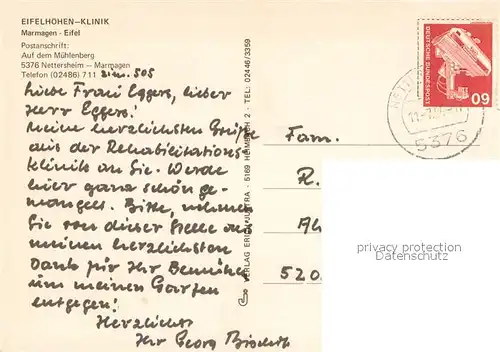 EIFELHÖHEN-KLINIK
Marmagen - Eifel
Postanschrift:
Auf dem Mühlenberg
5376 Nettersheim - Marmagen
Telefon (02486) 711
Zim. 505
Liebe Frau Eggers, lieber
Herr Eggers!
Meine herzlichsten Grüße
aus der Rehabilitations-
klinik an Sie. Werde
hier ganz schön ge-
mangelt. Bitte, nehmen
Sie von dieser Stelle aus
meinen herzlichsten
Dank für Ihr Bemühen
um meinen Garten
entgegen!
Herzlichst
Ihr Georg
VERLAG ERICH JUSTRA - 5169 HEIMBACH 2 - TEL: 02446/3359
Fam.
R.
520
DEUTSCHE BUNDESPOST
60
5376
privacy protection
Datenschutz